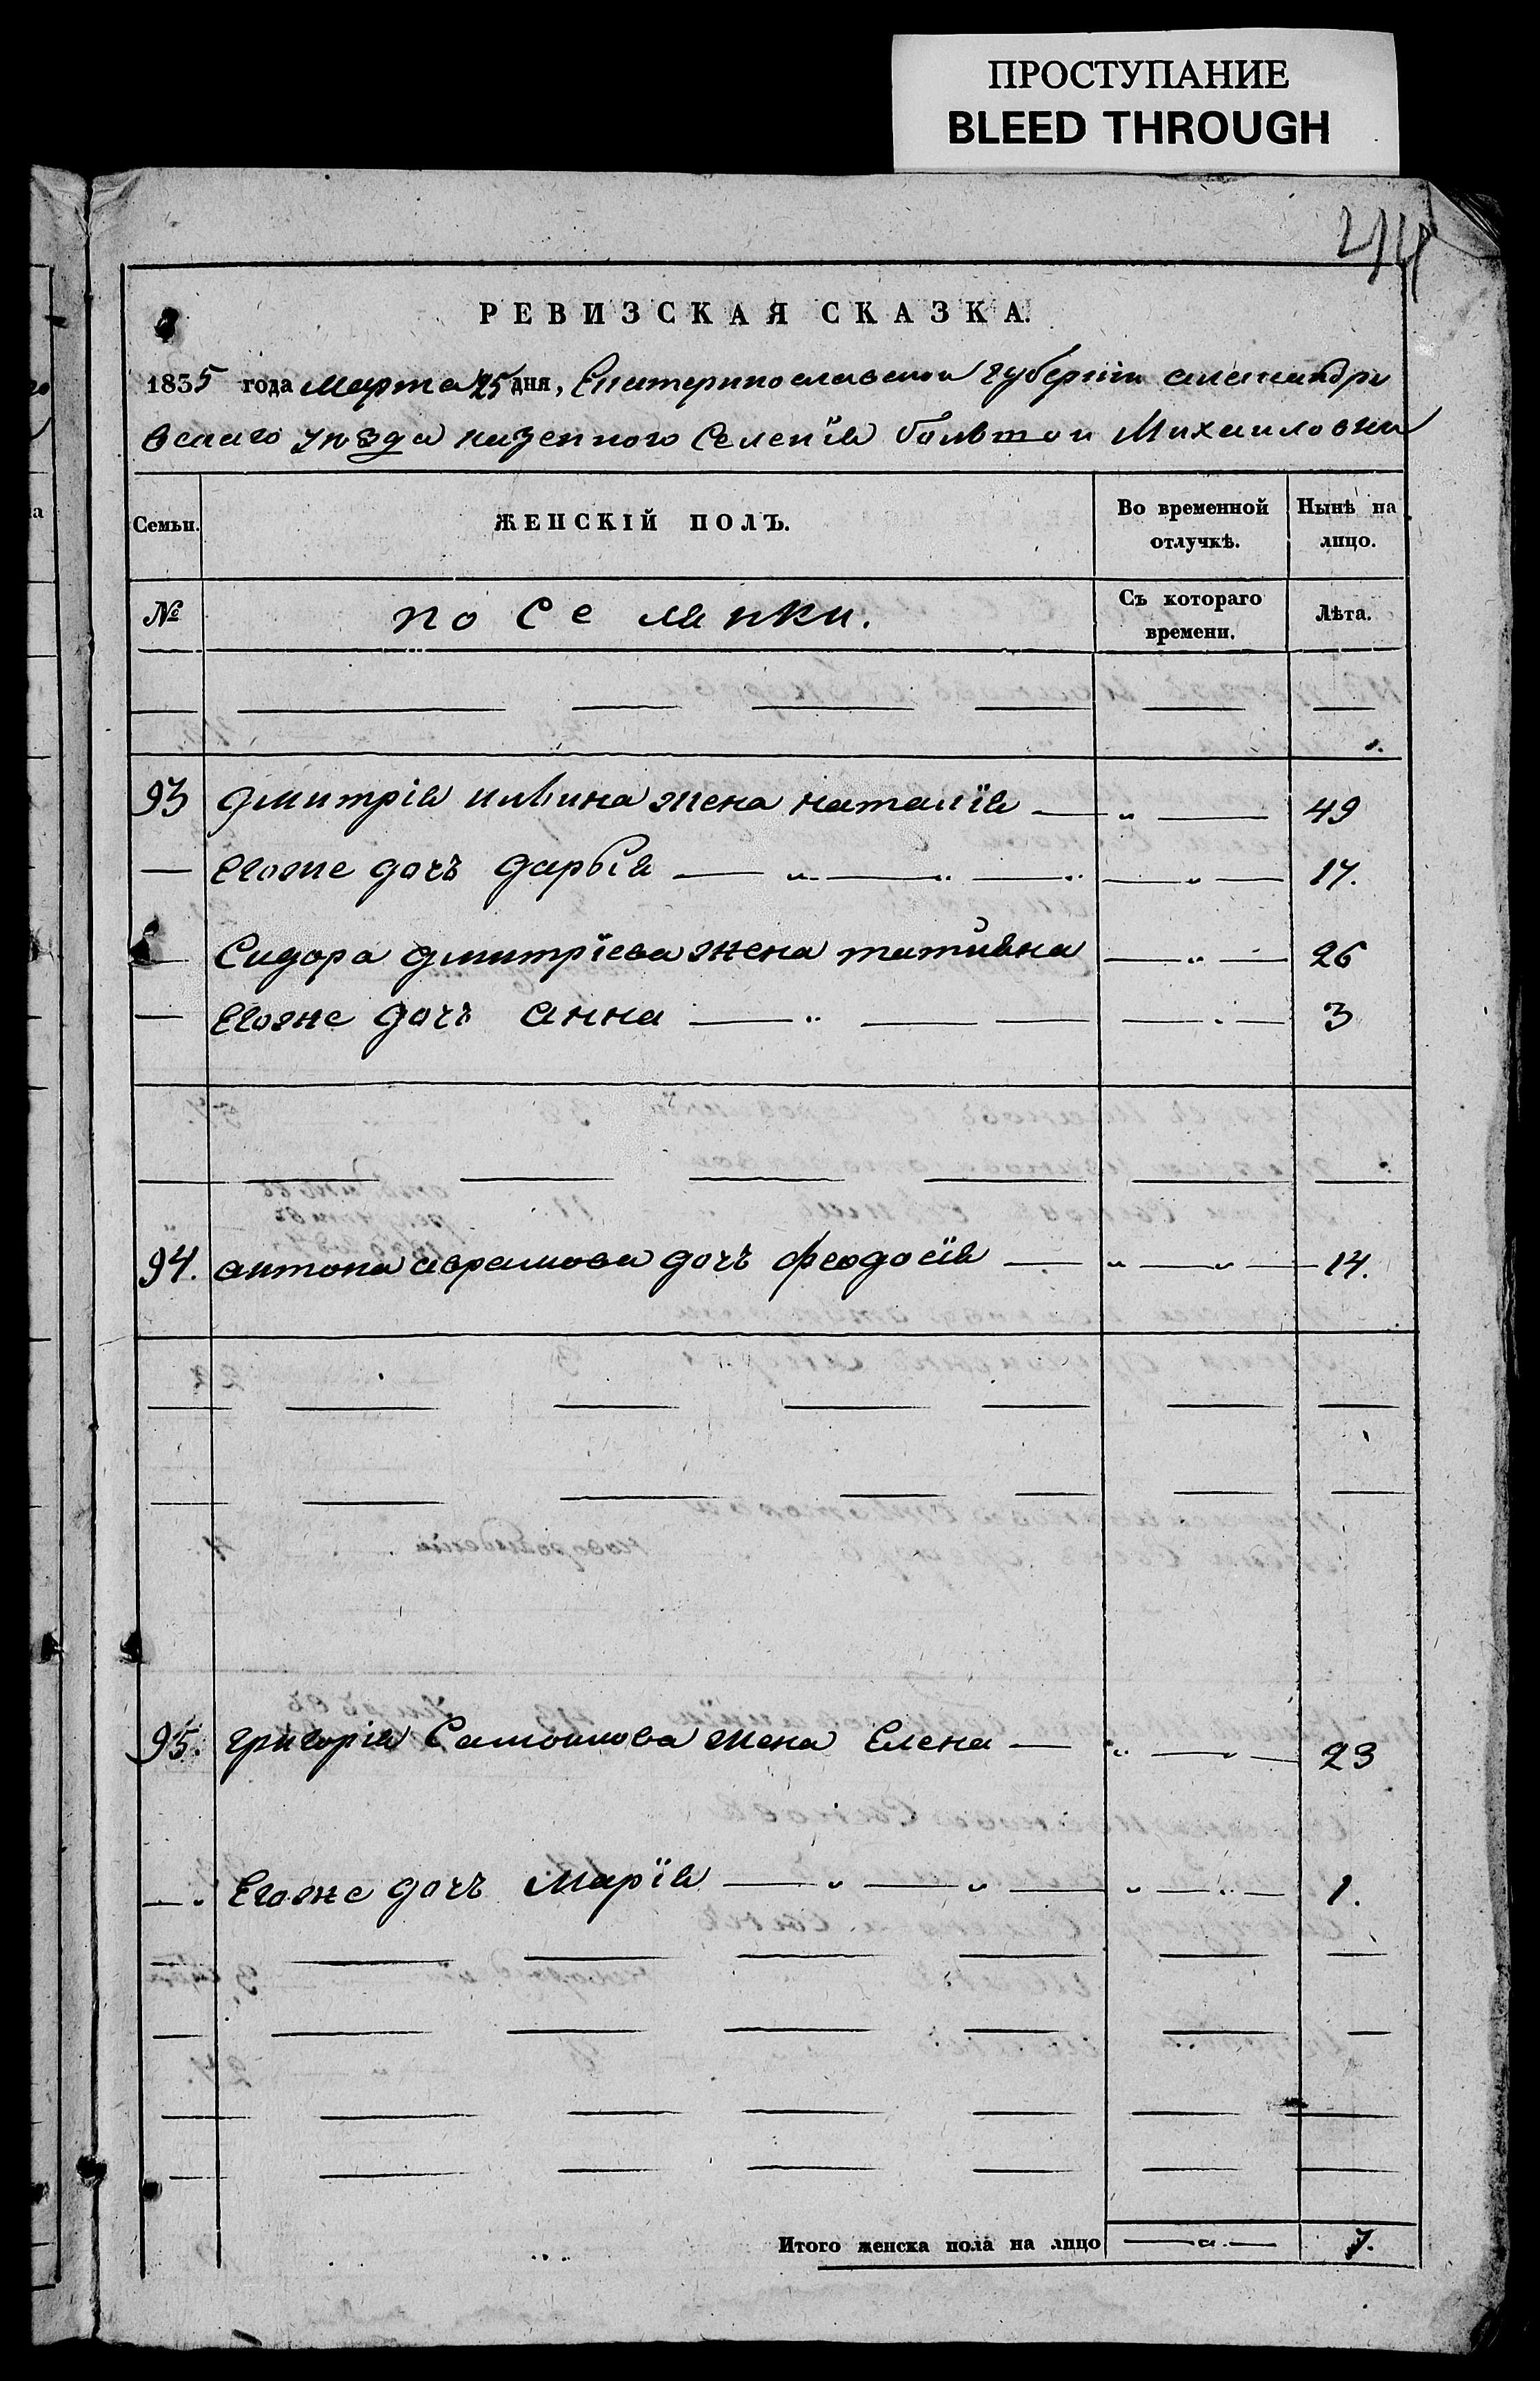 ПРОСТУПАНИЕ
BLEED THROUGH
244
РЕВИЗСКАЯ СКАЗКА.
1835 года марта 25 дня, Екатеринославской губерніи александро
вскаго уѣзда казенного Селенія большой Михаиловки
Семьи. ЖЕНСКІЙ ПОЛЪ. Во временной отлучкѣ. Нынѣ на лицо.
№ поселянки. Съ котораго времени. Лѣта.
93 дмитрія жена наталія 49
Егоже дочъ дарья 17.
Сидора дмитріева жена татияна 26
Егоже дочъ анна 3
94. антона аврамова дочъ феодосія 14.
95. григорія Самоилова жена Елена 23
Егоже дочъ Марія 1.
Итого женска пола на лицо 7.